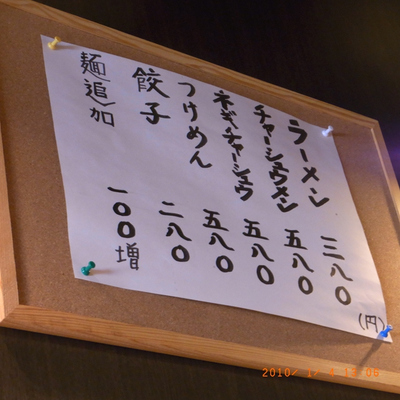 ラーメン 三八〇
チャーシュウメン 五八〇
ネギチャーシュウ 五八〇
つけめん 五八〇
餃子 二八〇
麺追加 一〇〇増
(円)
2010/ 1/